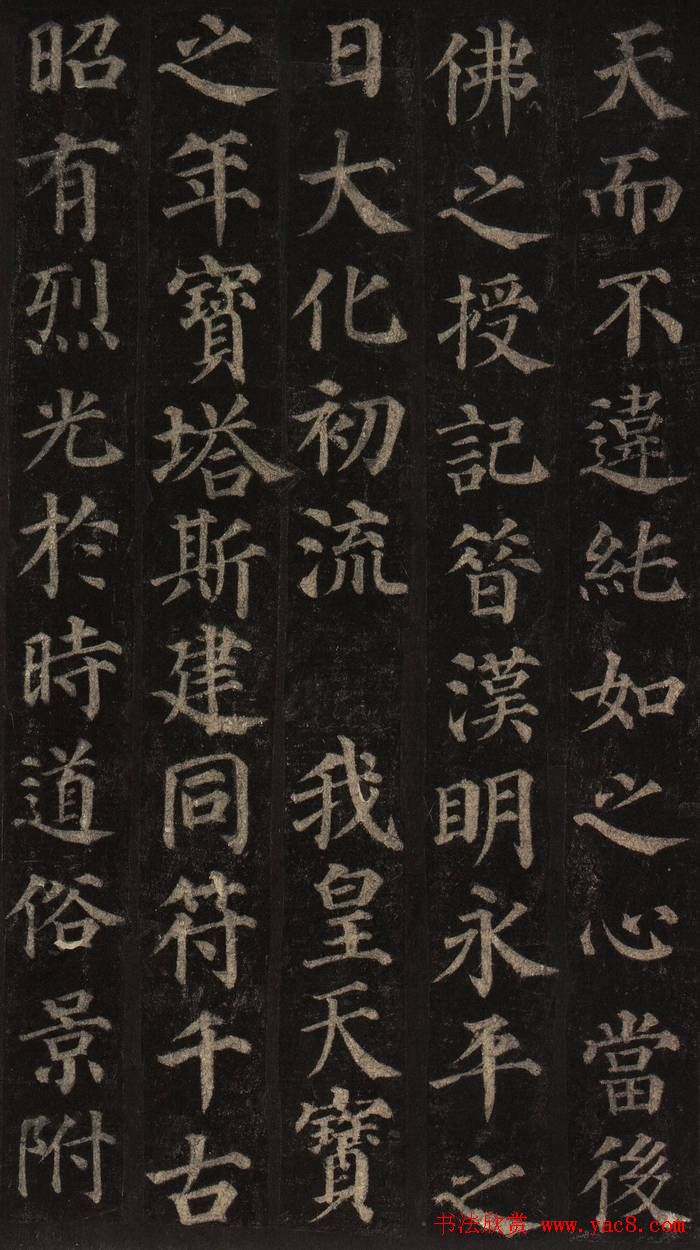 天而不違純如之心當後
佛之授記昔漢明永平之
日大化初流 我皇天寶
之年寶塔斯建同符千古
昭有烈光於時道俗景附
书法欣赏 www.yac8.com